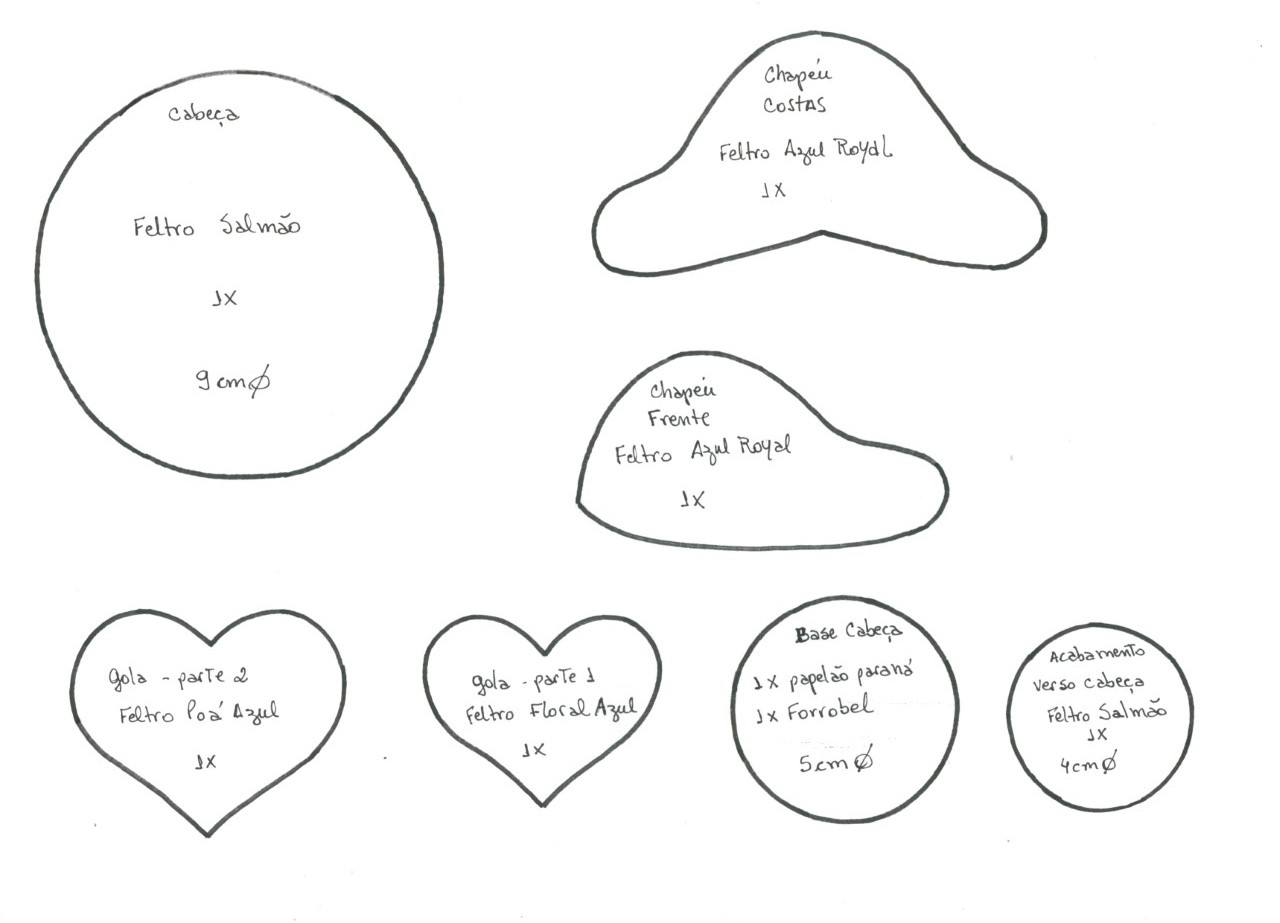 Cabeça
Feltro Salmão
1X
9cmø
Chapéu
COSTAS
Feltro Azul Royal
1X
Chapéu
Frente
Feltro Azul Royal
1X
gola - parte 2
Feltro Poá Azul
1X
gola - parte 1
Feltro Floral Azul
1X
Base Cabeça
1X papelão paraná
1X Forrobel
5cmø
Acabamento
verso cabeça
Feltro Salmão
1X
4cmø